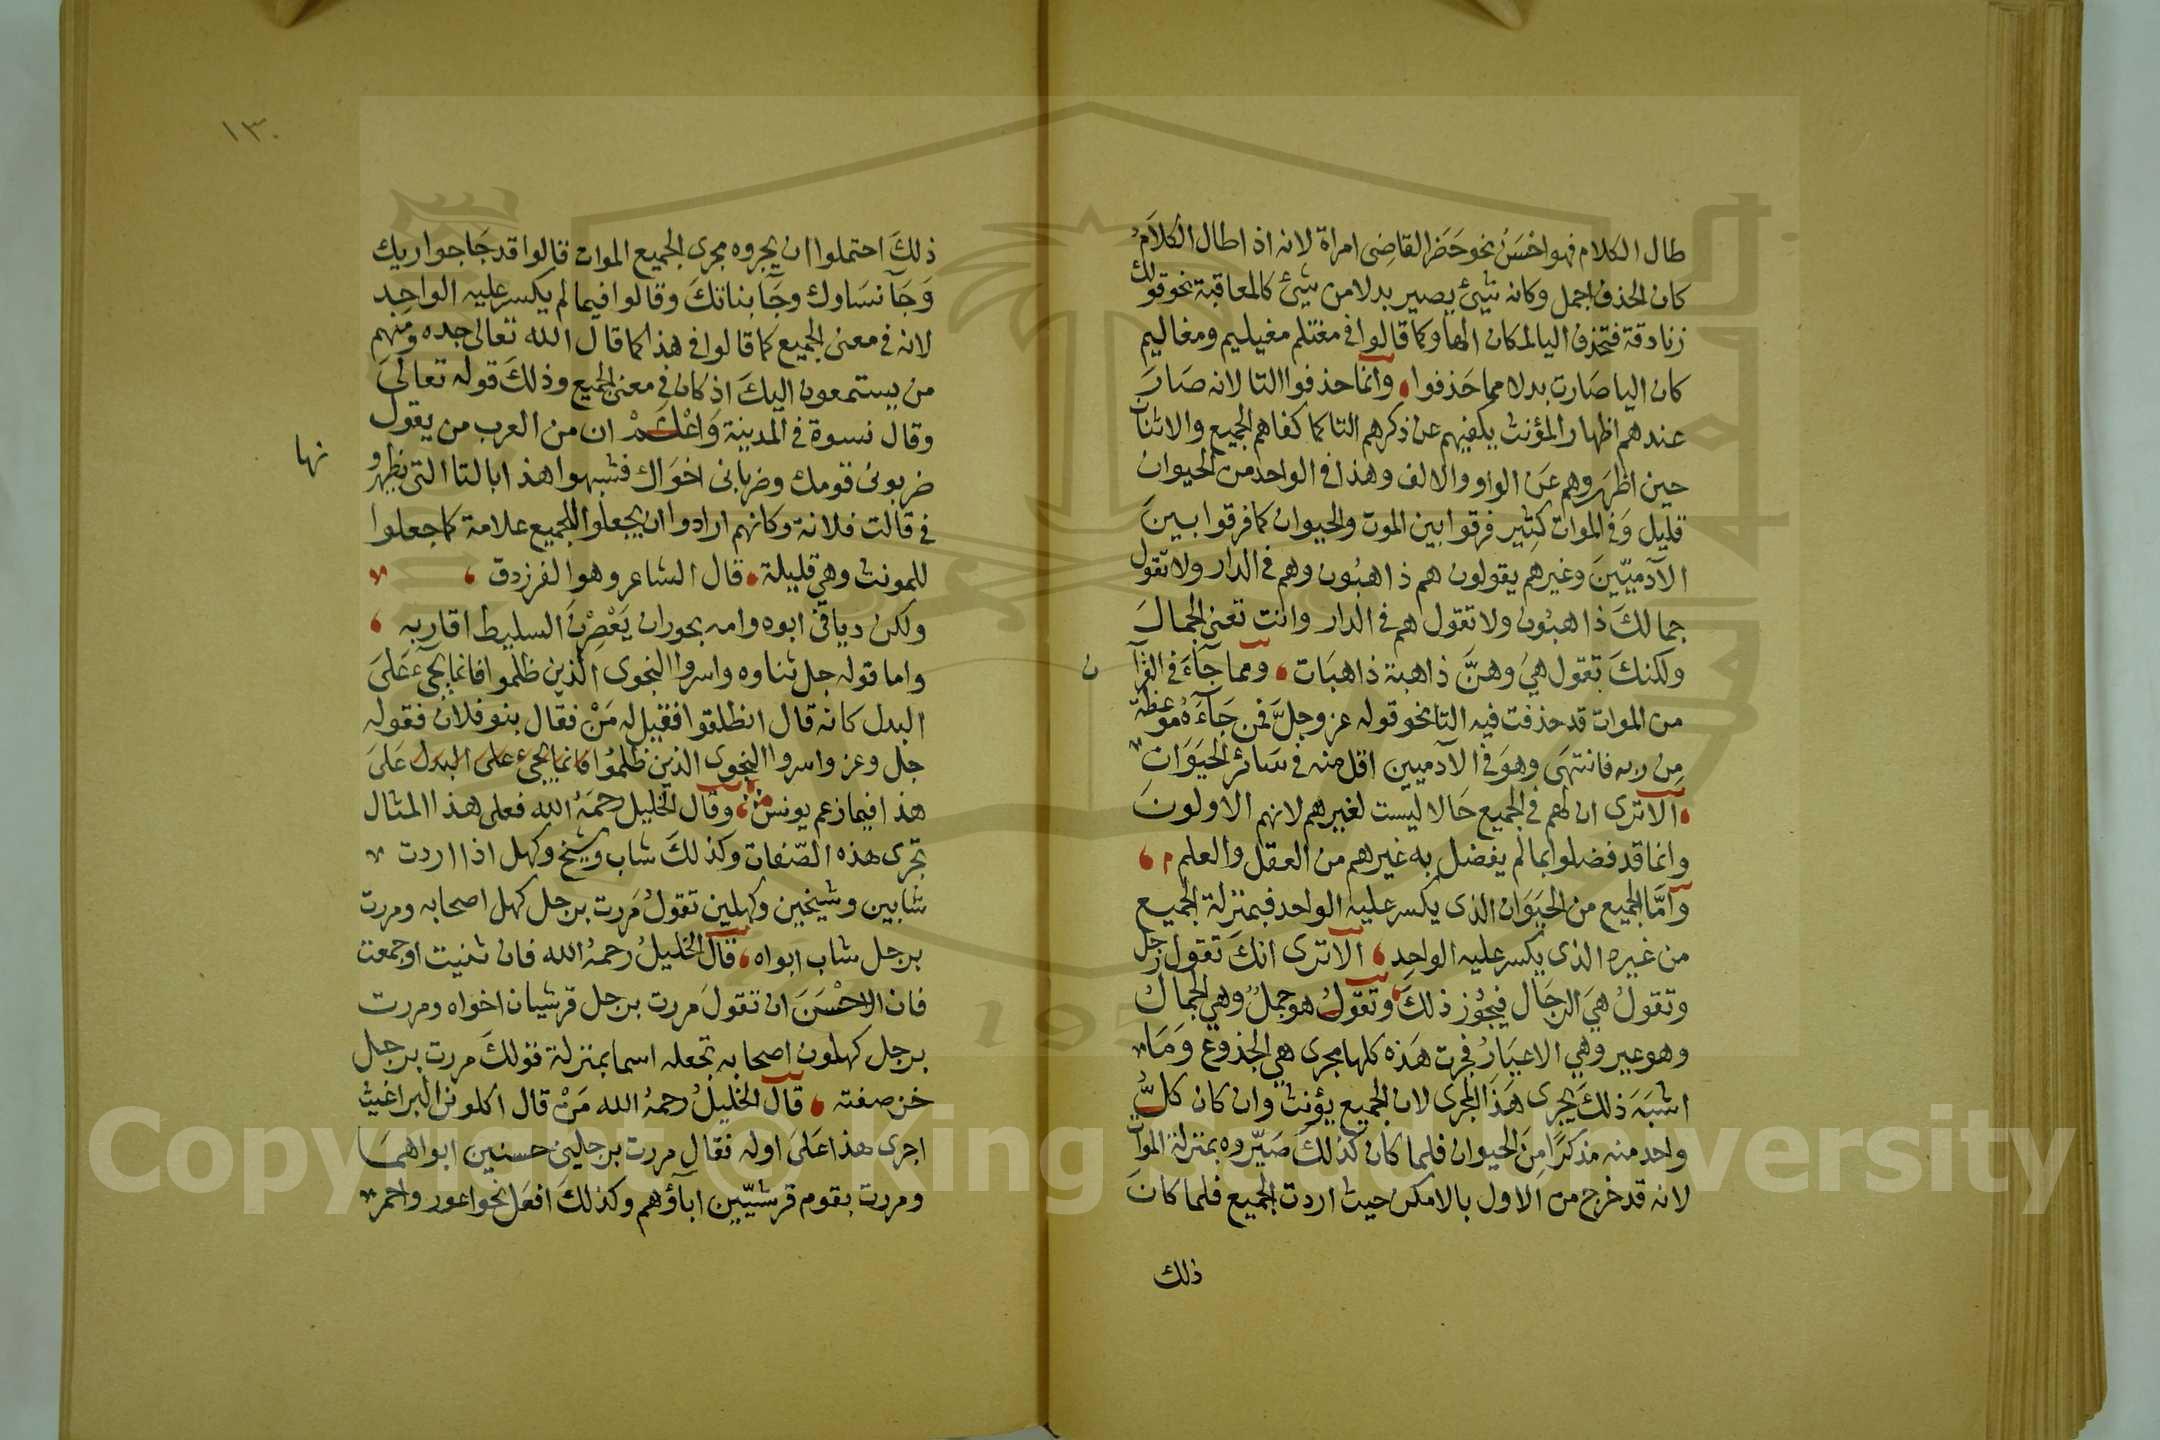 طال الكلام فهو احسن نحو حضر القاضى امراة لانه اذا طال الكلام
كان الحذف اجمل وكانه شئ يصير بدلا من شئ كالمعاقبة نحو قولك
زنادقة فتحذف اليا لمكان الها وكما قالوا فى مغتلم مغيليم ومغاليم
كان اليا صارت بدلا مما حذفوا وانما حذفوا التا لانه صار
عندهم اظهار المؤنث يكفيهم عن ذكرهم التا كما كفاهم الجميع والاثنان
حين اظهروهم عن الواو والالف وهذا فى الواحد من الحيوان
قليل وفى الموات كثير فرقوا بين الموت والحيوان كما فرقوا بين
الآدميين وغيرهم يقولون هم ذاهبون وهم فى الدار ولا تقول
جمالك ذاهبون ولا تقول هم فى الدار وانت تعنى الجمال
ولكنك تقول هي وهن ذاهبة ذاهبات ومما جآء فى القرآ
ن
من الموات قد حذفت فيه التا نحو قوله عز وجل فمن جآءه موعظة
من ربه فانتهى وهو فى الآدميين اقل منه فى سائر الحيوات
الا ترى ان لهم فى الجميع حالا ليست لغيرهم لانهم الاولون
وانما قد فضلوا بما لم يفضل به غيرهم من العقل والعلم م
وآما الجميع من الحيوان الذى يكسر عليه الواحد فبمنزلة الجميع
من غيره الذى يكسر عليه الواحد الا ترى انك تقول رجل
وتقول هى الرجال فيجوز ذلك وتقول هو جمل وهي الجمال
وهو عير وهي الاعيار فجرت هذه كلها مجرى هي الجذوع وما
اشبه ذلك يجرى هذا المجرى لان الجميع يؤنث وان كان كل
واحد منه مذكرا من الحيوان فلما كان كذلك صيروه بمنزلة الموات
لانه قد خرج من الاول بالامكن حيث اردت الجميع فلما كان
ذلك
١٣٠
ذلك احتملوا ان يجروه مجرى الجميع الموات قالوا قد جا جواريك
وجآ نساوك وجآ بناتك وقالوا فيما لم يكسر عليه الواحد
لانه فى معنى الجميع كما قالوا فى هذا كما قال الله تعالى جده ومنهم
من يستمعون اليك اذ كان فى معنى الجميع وذلك قوله تعالى
وقال نسوة فى المدينة واعلم ان من العرب من يقول
ضربونى قومك وضربانى اخواك فشبهوا هذا بالتا التى يظهرو
نها
فى قالت فلانة وكانهم ارادوا ان يجعلوا للجميع علامة كما جعلوا
للمونث وهي قليلة قال الشاعر وهوا لفرزدق
ولكن ديافى ابوه وامه بحوران يعصرن السليط اقاربه
واما قوله جل ثناوه واسروا النجوى الذين ظلموا فانما يجيء على
البدل كانه قال انطلقوا فقيل له من فقال بنو فلان فقوله
جل وعز واسروا النجوى الذين ظلموا فانما يجيء على البدل على
هذا فيما زعم يونس وقال الخليل رحمه الله فعلى هذا المثال
تجرى هذه الصفات وكذلك شاب وشيخ وكهل اذا اردت
شابين وشيخين وكهلين تقول مررت برجل كهل اصحابه ومررت
برجل شاب ابواه قال الخليل رحمه الله فان ثنيت او جمعت
فان الاحسن ان تقول مررت برجل قرشيان اخواه ومررت
برجل كهلون اصحابه تجعله اسما بمنزلة قولك مررت برجل
خز صفته قال الخليل رحمه الله من قال اكلونى البراغيث
اجرى هذا على اوله فقال مررت برجلين حسنين ابواهما
ومررت بقوم قرشيين ابآؤهم وكذلك افعل نحو اعور واحمر
Copyright © King Saud University
1957